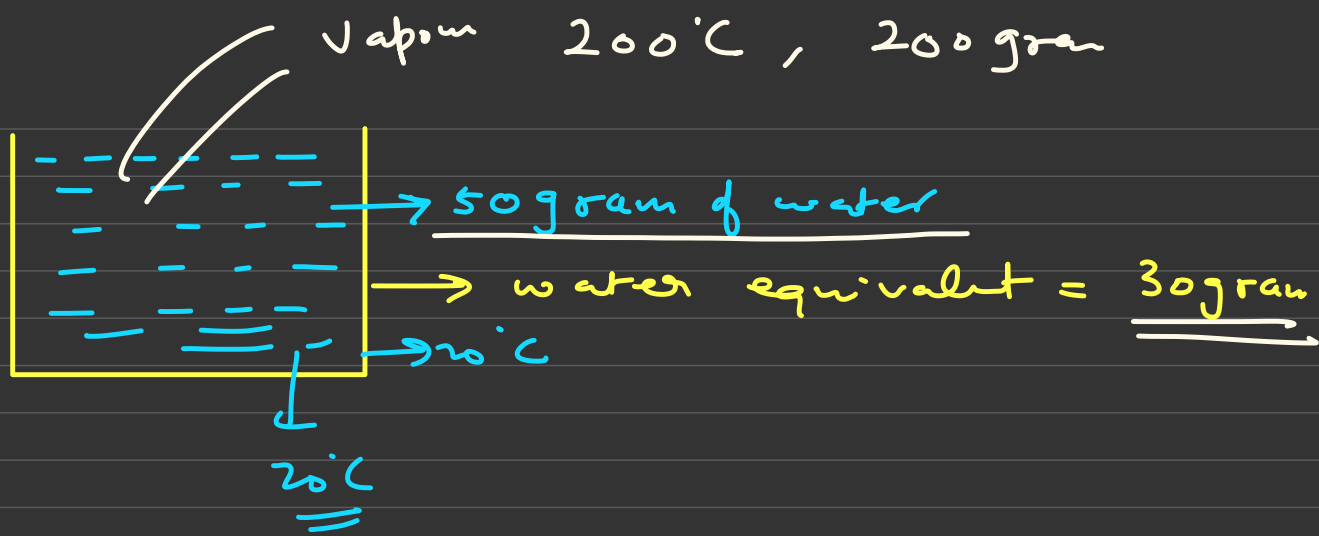 Vapour 200°C, 200 gram
50 gram of water
water equivalent = 30 gram
20°C
20°C